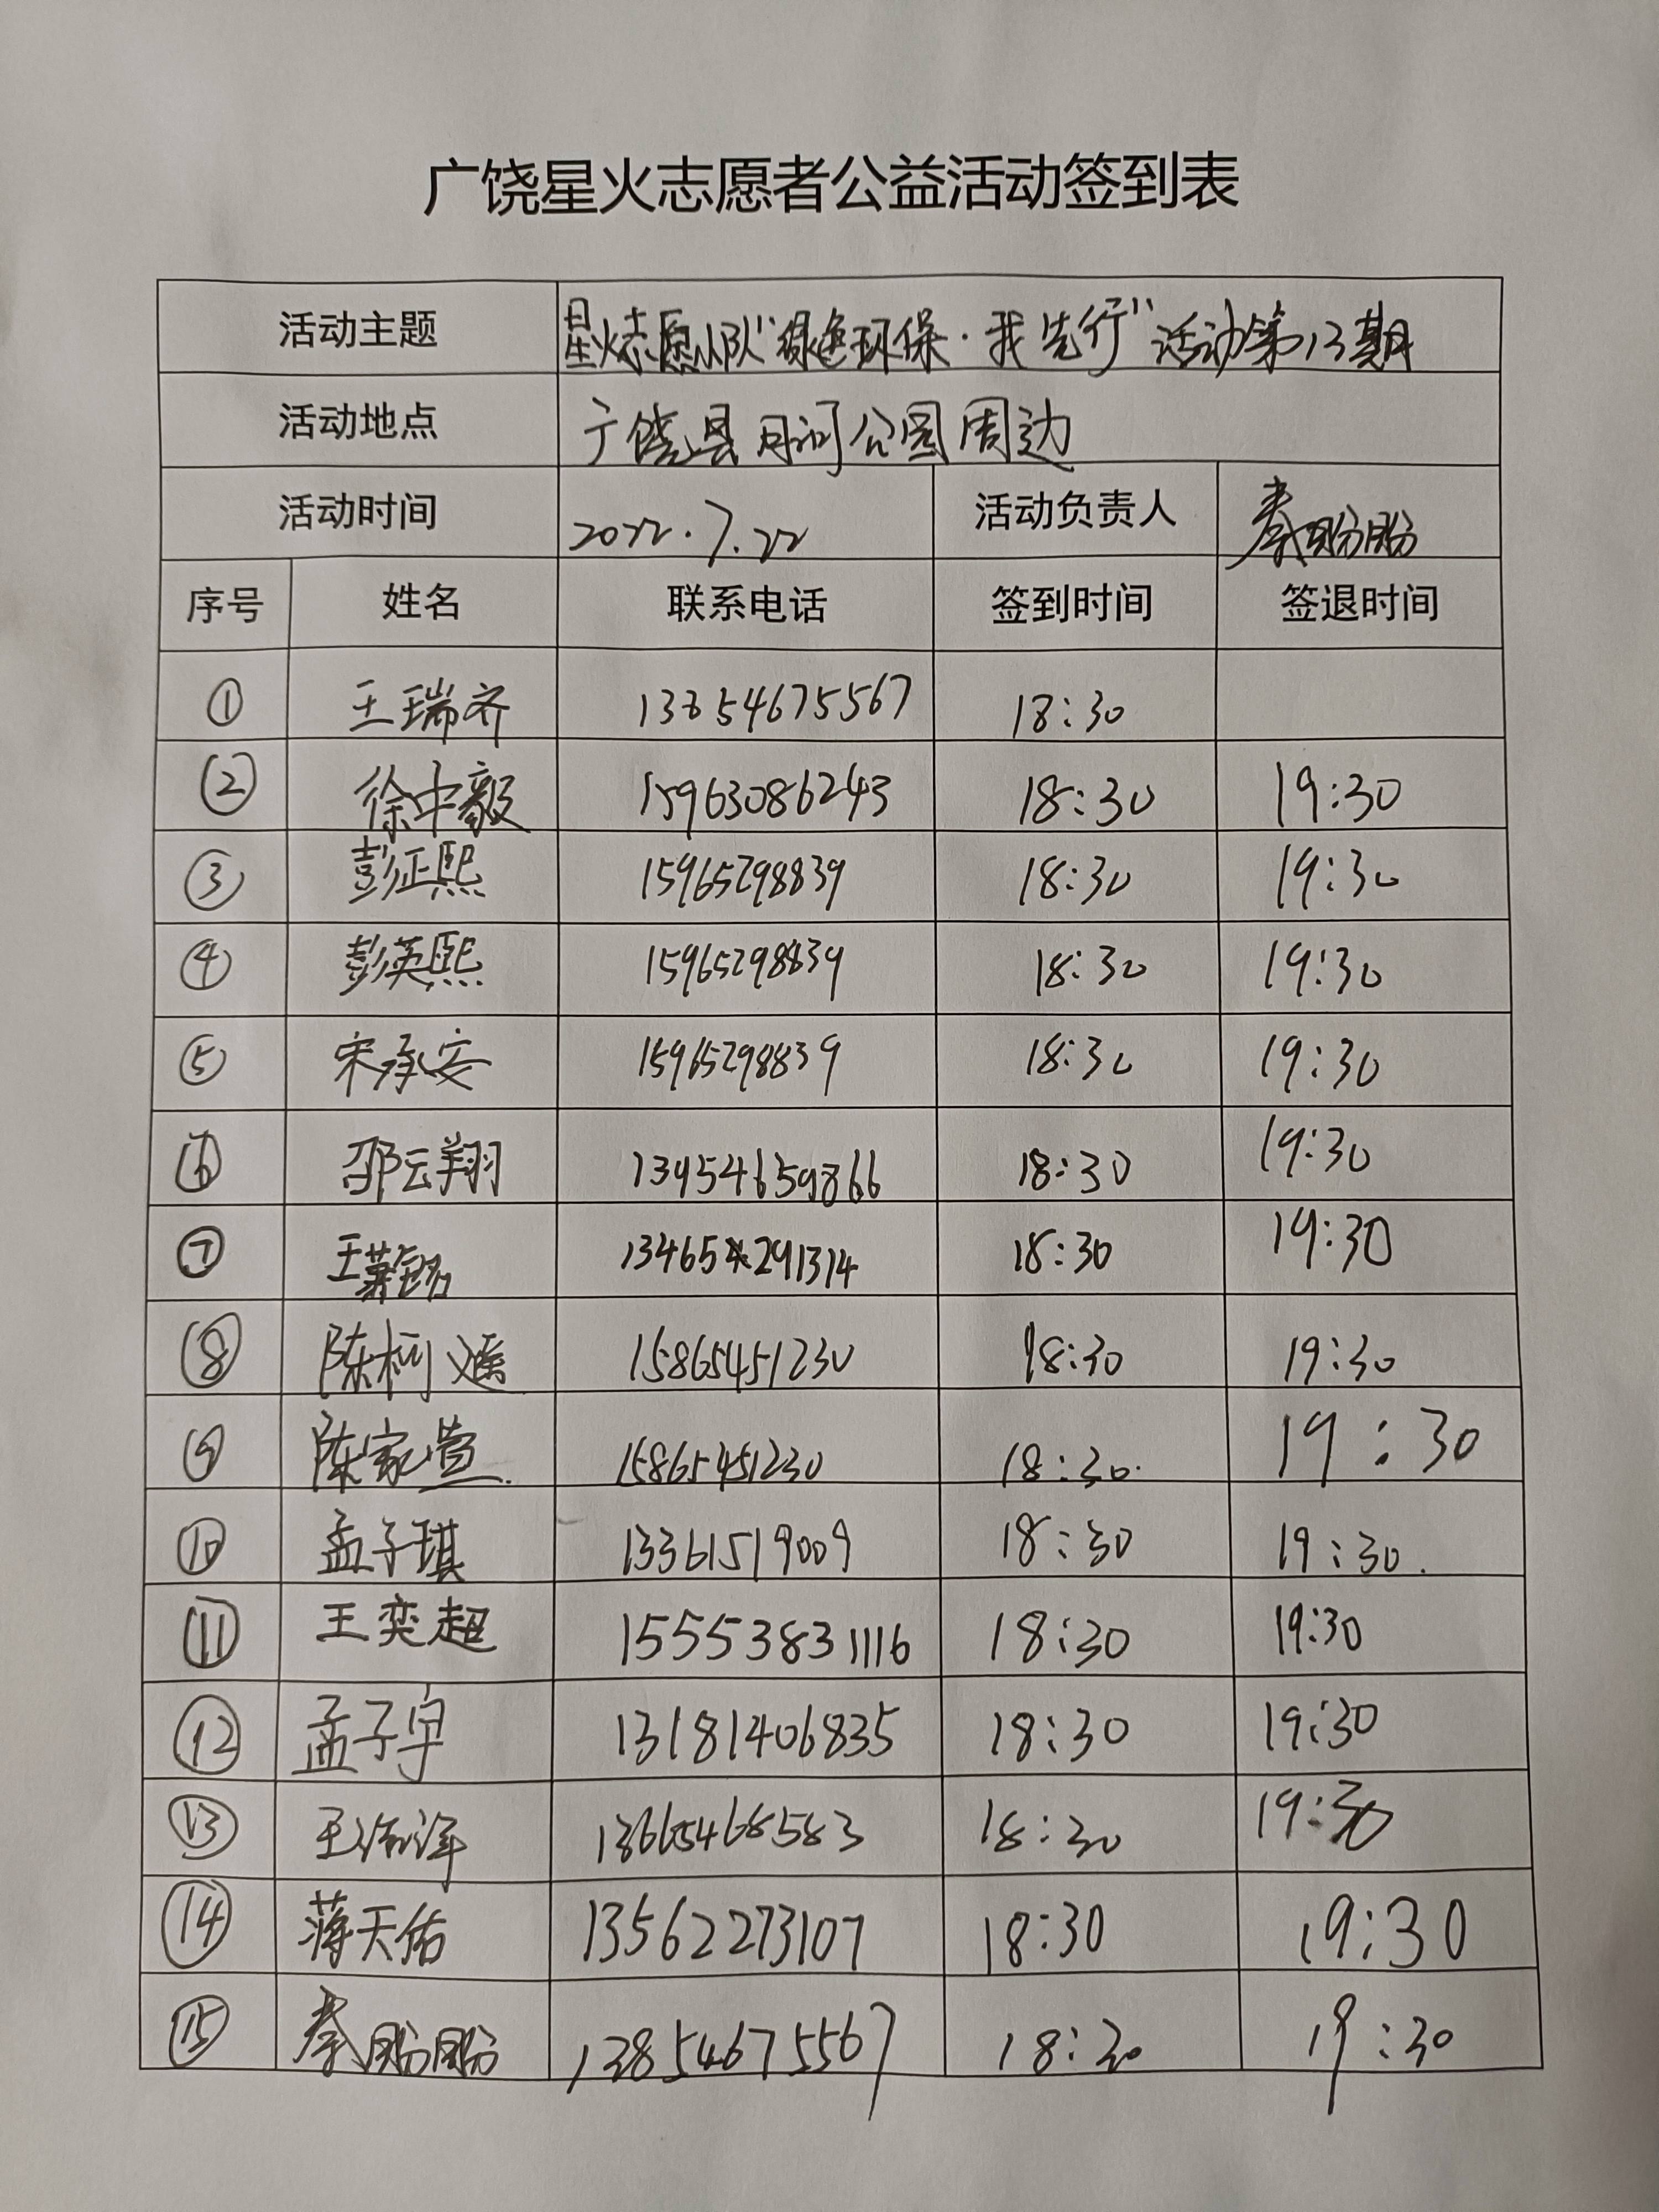 广饶星火志愿者公益活动签到表
活动主题 星火志愿小队“绿色环保·我先行”活动第13期
活动地点 广饶县月河公园周边
活动时间 2022.7.22 活动负责人 秦盼盼
序号 姓名 联系电话 签到时间 签退时间
① 王瑞齐 13854675567 18:30
② 徐中毅 15963086243 18:30 19:30
③ 彭征熙 15965298839 18:30 19:30
④ 彭英熙 15965298839 18:30 19:30
⑤ 宋承安 15965298839 18:30 19:30
⑥ 邵云翔 13954659866 18:30 19:30
⑦ 王萧铭 13465291314 18:30 19:30
⑧ 陈柯 15865451230 18:30 19:30
⑨ 陈家萱 15865451230 18:30. 19:30
⑩ 孟子琪 13361519009 18:30 19:30.
⑪ 王奕超 15553831116 18:30 19:30
⑫ 孟子宇 13181406835 18:30 19:30
⑬ 王浩洋 13665468583 18:30 19:30
⑭ 蒋天佑 13562273107 18:30 19:30
⑮ 秦盼盼 13854675567 18:30 19:30